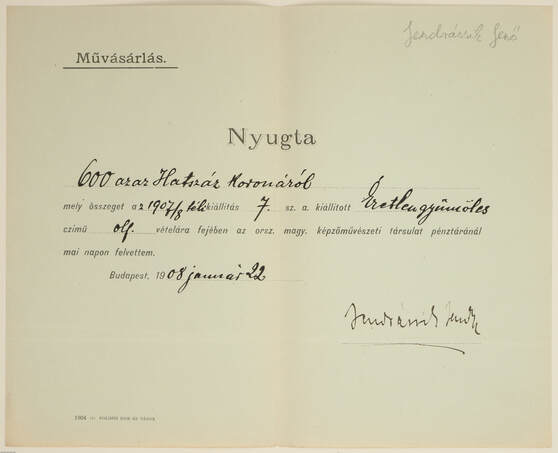 Jendrássik Jenő
Művásárlás.
Nyugta
600 azaz Hatszáz Koronáról
mely összeget az 1907/8 téli kiállítás 7. sz. a. kiállított Éretlen gyümölcs
című olf. vételára fejében az orsz. magy. képzőművészeti társulat pénztáránál
mai napon felvettem.
Budapest, 1908 január 22
Jendrássik Jenő